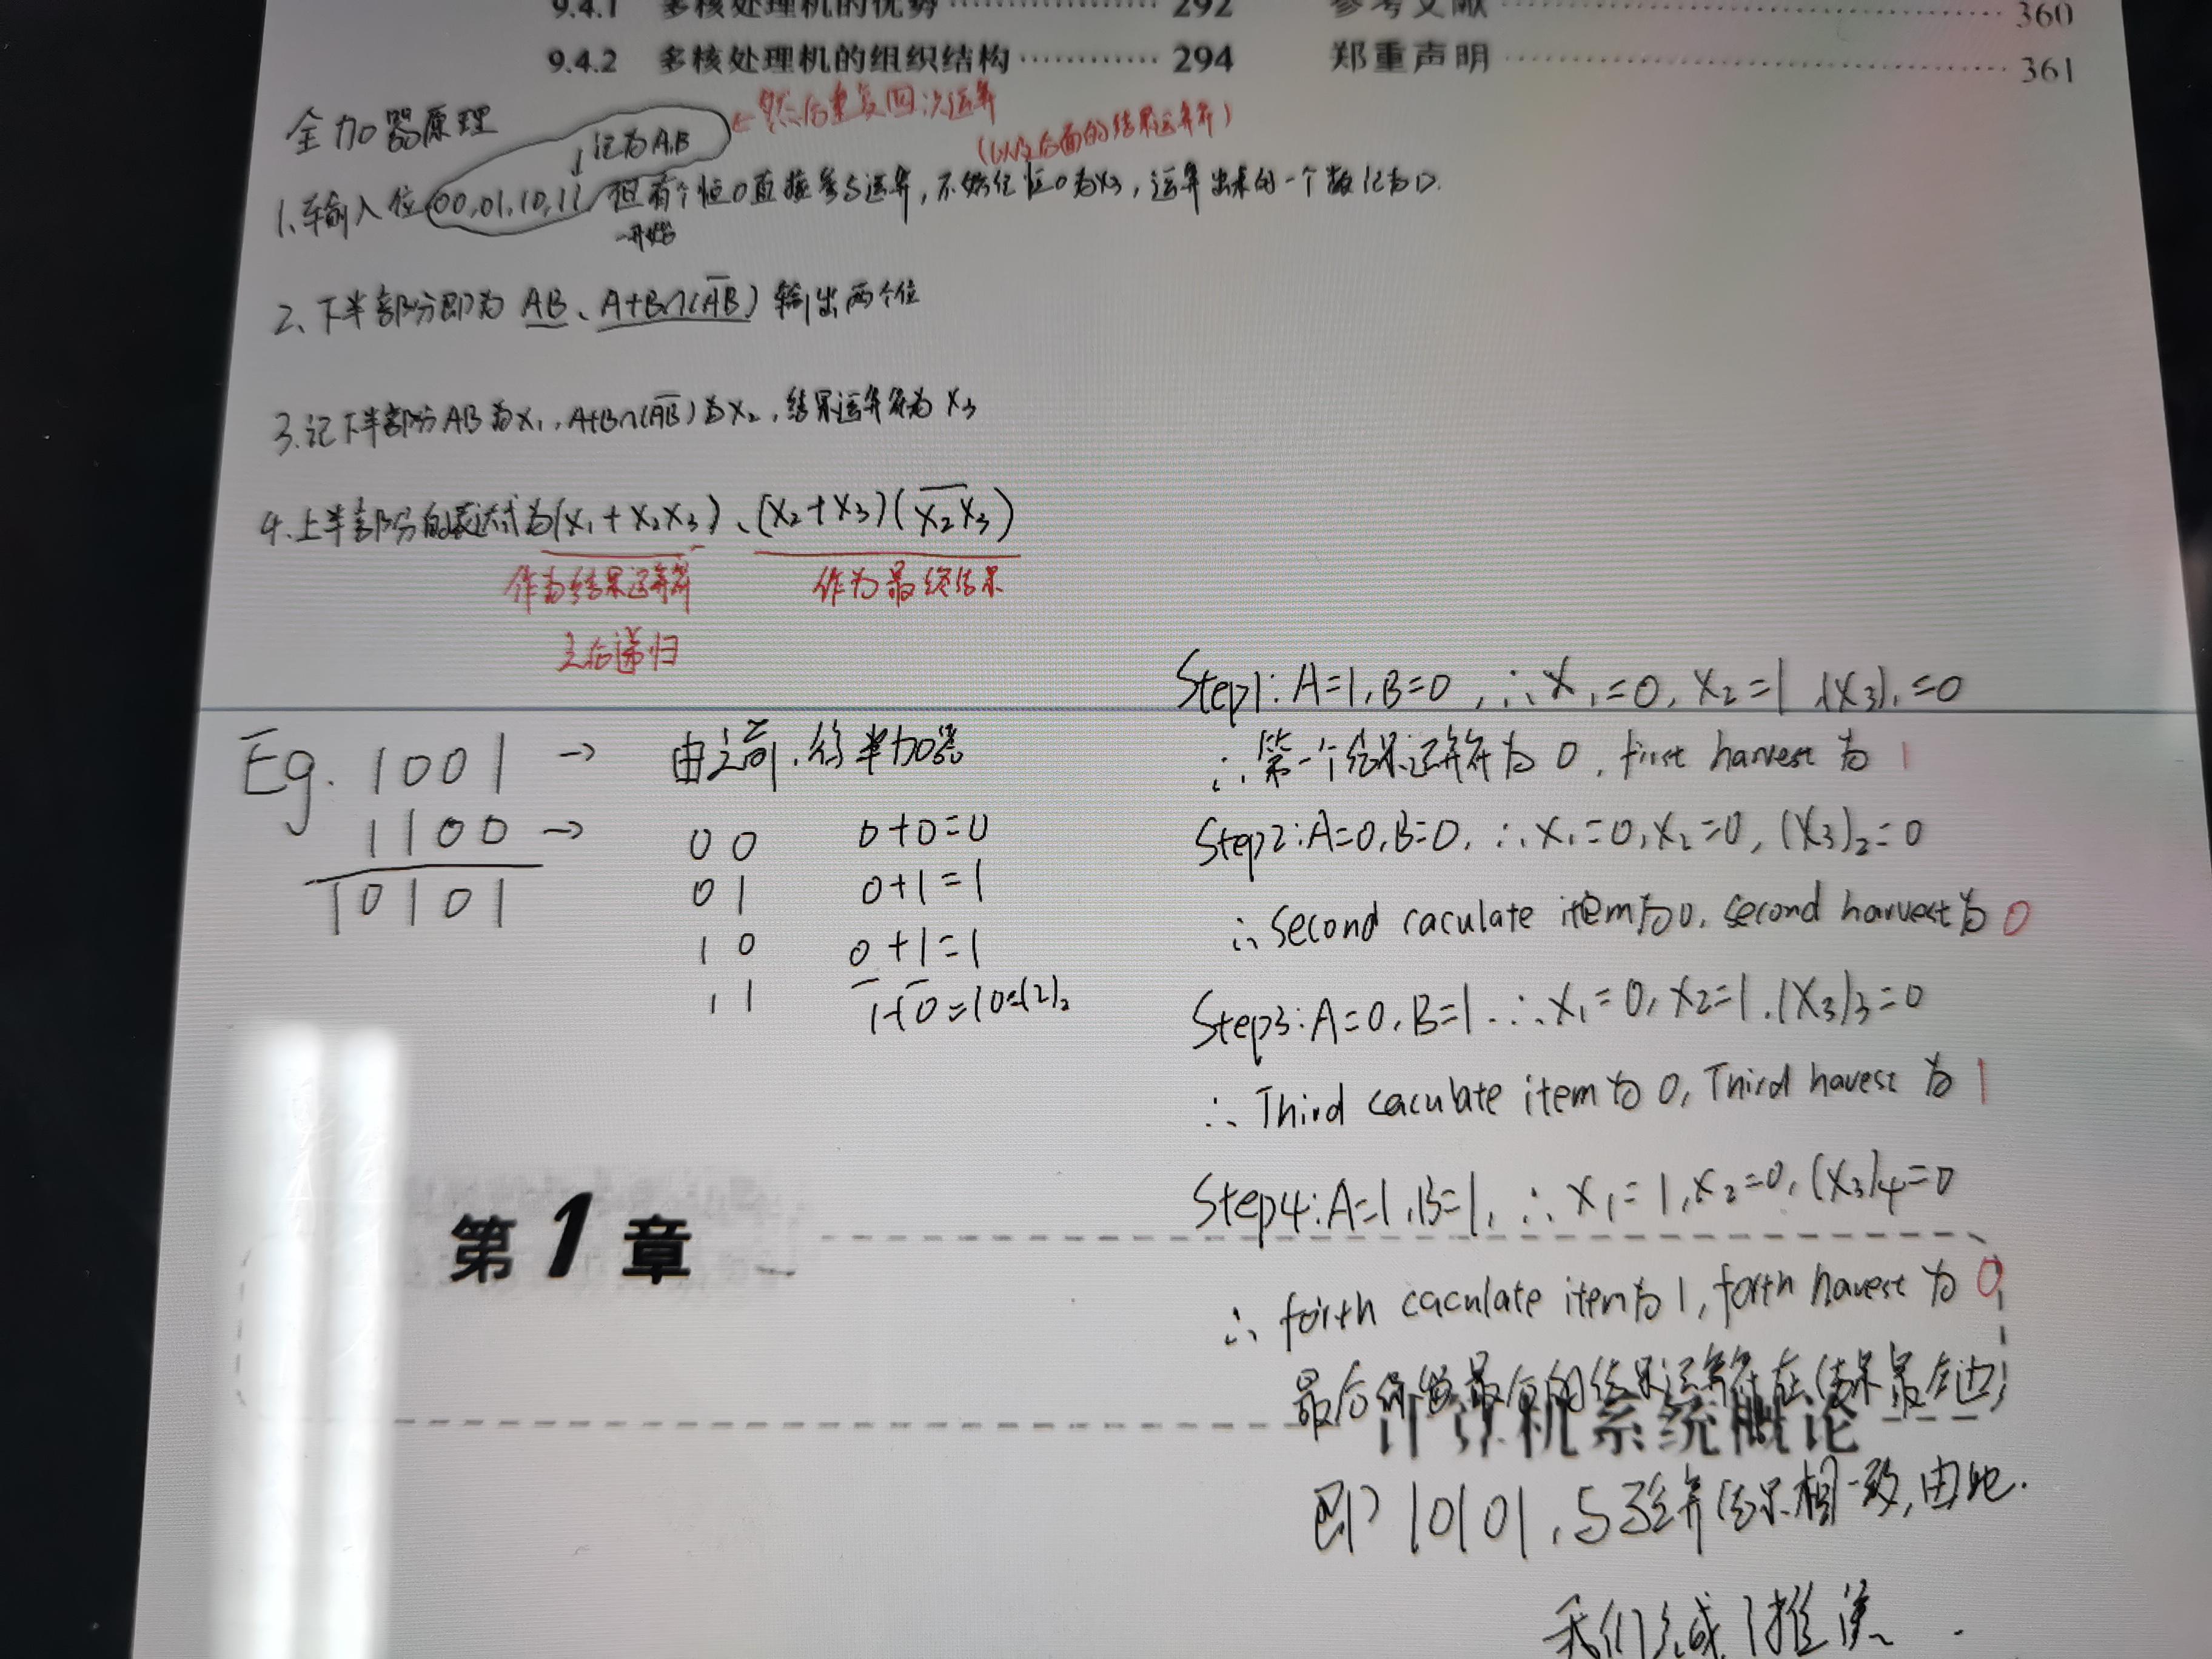 9.4.1 多核处理机的优势 292
参考文献 360
9.4.2 多核处理机的组织结构 294
郑重声明 361
全加器原理
↓记为A,B
← 然后重复四次运算
(以及后面的结果运算符)
1.输入位00,01,10,11,但有个恒0直接参与运算,不妨记恒0为X₃,运算出来的一个数记为
一开始
2、下半部分即为 AB、A+B∩(A̅B̅) 输出两个位
3.记下半部分AB为X₁,A+B∩(A̅B̅)为X₂,结果运算符为X₃
4.上半部分的表达式为(X₁+X₂X₃)、(X₂+X₃)(X̅₂X̅₃)
作为结果运算符
作为最终结果
之后递归
Eg. 1001 →
1100 →
10101
由之前,得半加器
0 0 0+0=0
0 1 0+1=1
1 0 0+1=1
1 1 1+0=10=(2)₂
Step1: A=1,B=0,∴X₁=0,X₂=1,(X₃)₁=0
∴第一个结果运算符为0,first harvest为1
Step2:A=0,B=0,∴X₁=0,X₂=0,(X₃)₂=0
∴Second caculate item为0,second harvest为0
Step3:A=0,B=1.∴X₁=0,X₂=1.(X₃)₃=0
∴Third caculate item为0,Third havest为1
Step4:A=1,B=1,∴X₁=1,X₂=0,(X₃)₄=0
∴forth caculate item为1,forth havest为0
最后 最后的结果运算符在结果最左边,
即10101,与 结果相一致,由此.
我们完成了推演.
第1章
计算机系统概论